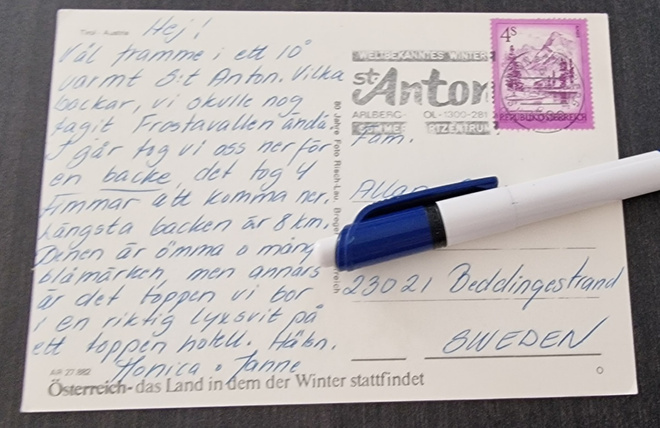 Tirol Austria
Hej!
Väl framme i ett 10°
varmt S:t Anton. Vilka
backar, vi skulle nog
tagit Frostavallen ändå
I går tog vi oss ner för
en backe, det tog 4
timmar att komma ner.
Längsta backen är 8 km.
Benen är ömma o mång
blåmärken, men annars
är det toppen vi bor
i en riktig lyxsvit på
ett toppen hotell. Hälsn.
Monica o Janne
AIR 27 882
Österreich - das Land in dem der Winter stattfindet
80 Jahre Foto Risch-Lau
WELTBEKANNTES WINTER
St. Anton
ARLBERG
SOMME RTZENTRUM
4S
REPUBLIK ÖSTERREICH
Fam.
Allan
23021 Beddingestrand
SWEDEN